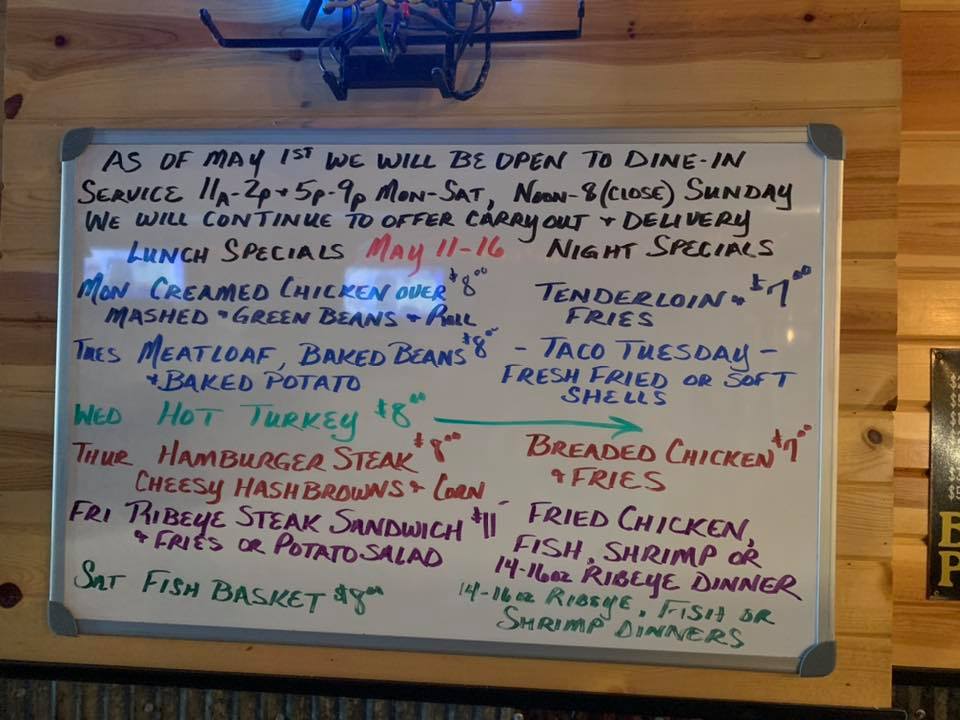 AS OF MAY 1ST WE WILL BE OPEN TO DINE-IN
SERVICE 11A-2P + 5P-9P MON-SAT, NOON-8 (CLOSE) SUNDAY
WE WILL CONTINUE TO OFFER CARRYOUT + DELIVERY
LUNCH SPECIALS MAY 11-16 NIGHT SPECIALS
MON CREAMED CHICKEN OVER $8.00
MASHED + GREEN BEANS + ROLL
TENDERLOIN + $7.00
FRIES
TUES MEATLOAF, BAKED BEANS $8
+ BAKED POTATO
- TACO TUESDAY -
FRESH FRIED OR SOFT
SHELLS
WED HOT TURKEY $8.00 →
THUR HAMBURGER STEAK $8.00
CHEESY HASHBROWNS + CORN
BREADED CHICKEN $7.00
+ FRIES
FRI RIBEYE STEAK SANDWICH $11
+ FRIES OR POTATO SALAD
FRIED CHICKEN,
FISH, SHRIMP OR
14-16OZ RIBEYE DINNER
SAT FISH BASKET $8.00
14-16OZ RIBEYE, FISH OR
SHRIMP DINNERS
B
P